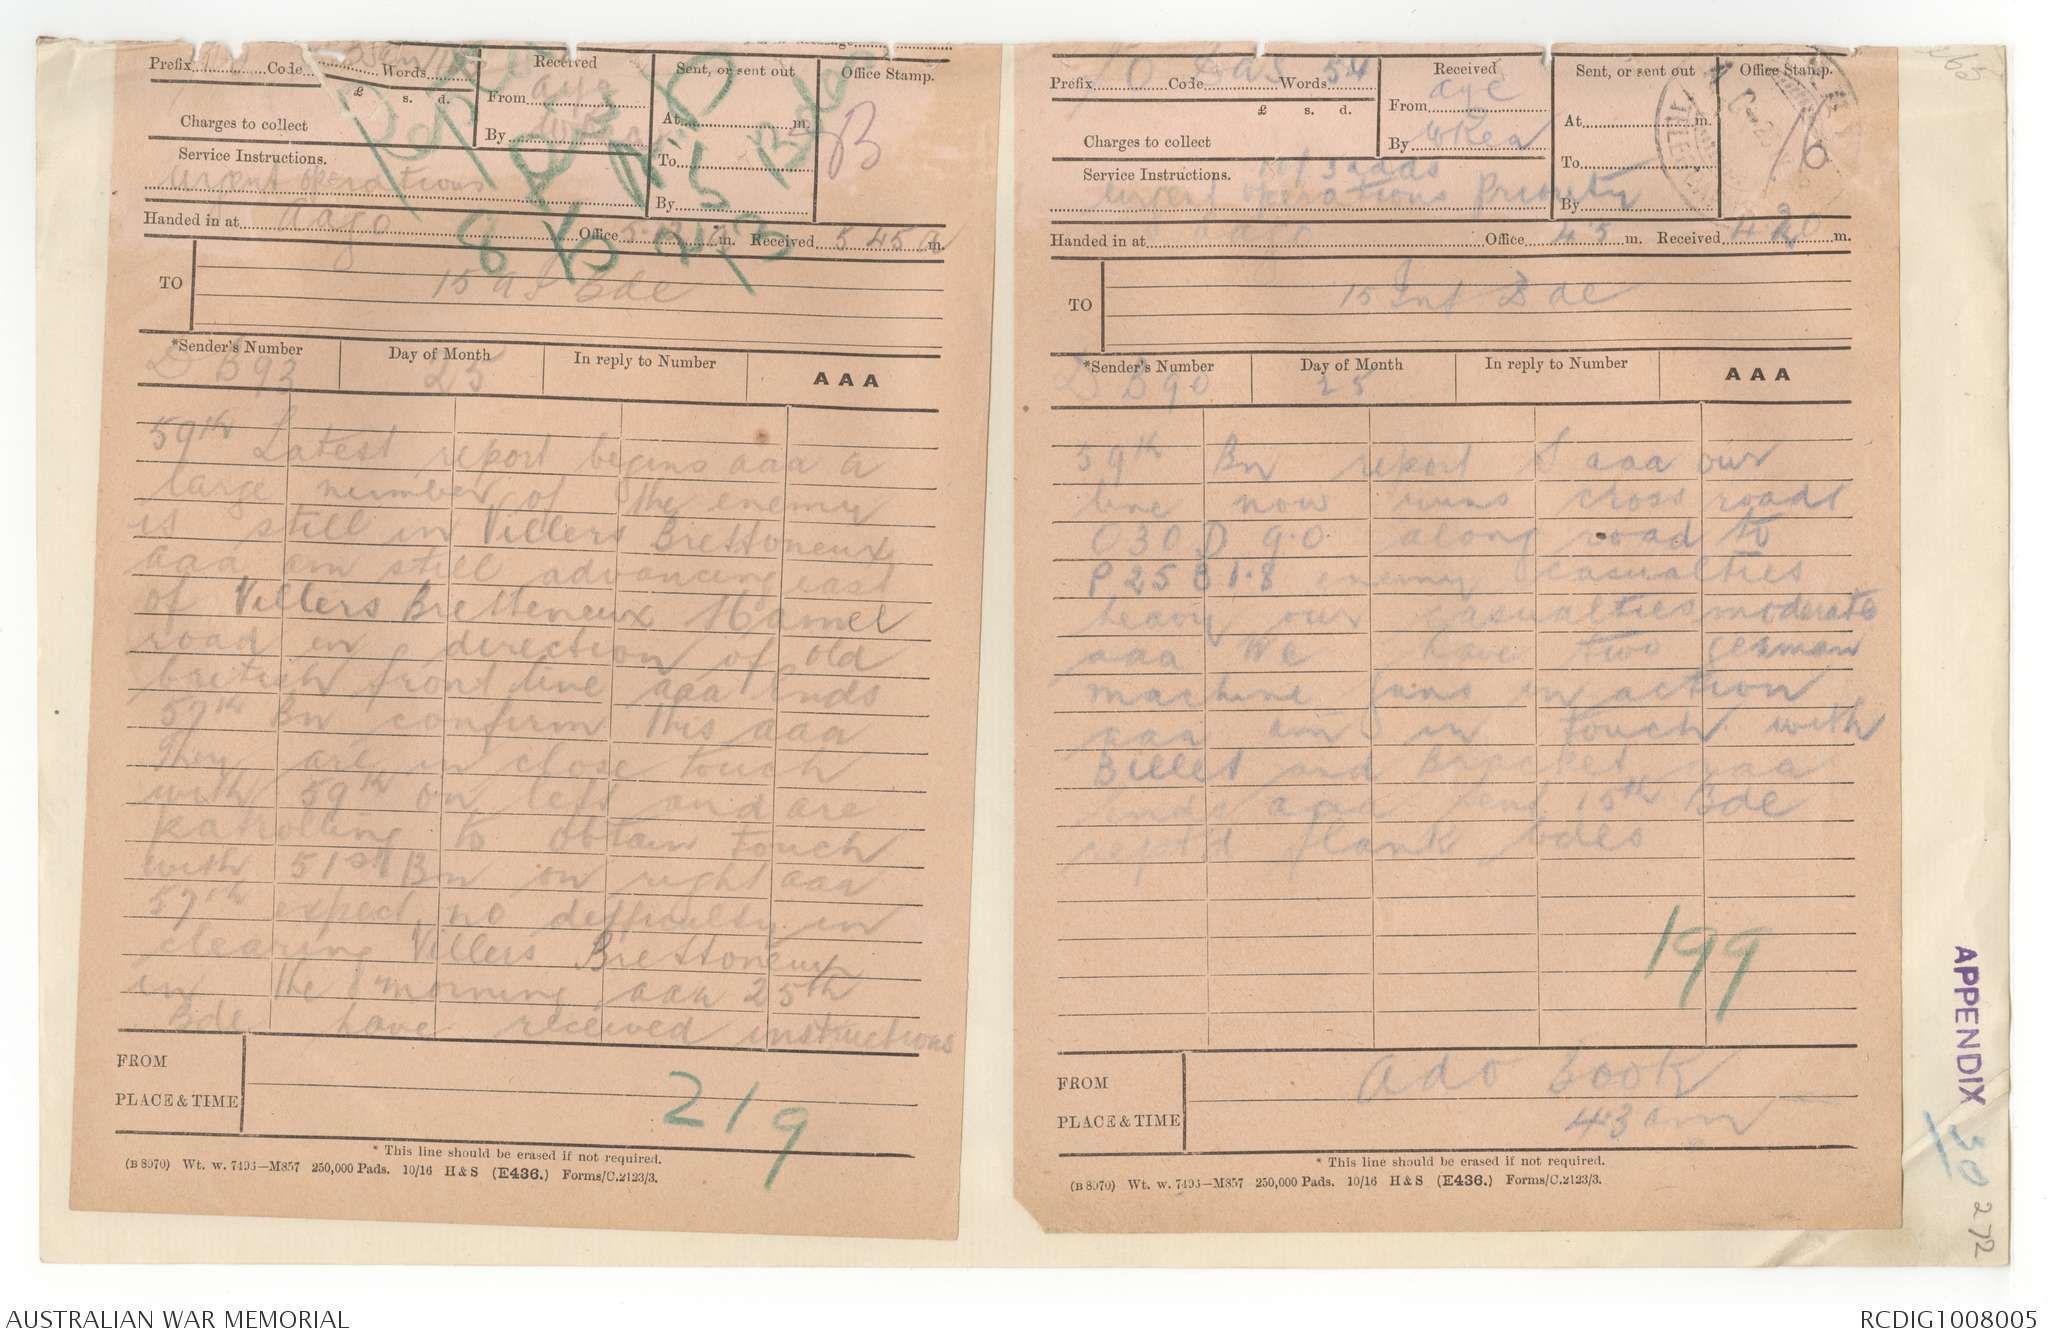 Prefix Code Words
£ s. d.
Charges to collect
Service Instructions.
Urgent operations
Received
From aye
By
Sent, or sent out
At m.
To
By
Office Stamp.
B
Handed in at aago Office m. Received 545a m.
TO 15 Bde
*Sender's Number Day of Month In reply to Number AAA
DB93 25
59th Latest report begins aaa a
large number of the enemy
is still in Villers Brettoneux
aaa am still advancing east
of Villers Bretteneux Hamel
road in direction of old
british front line aaa ends
57th Bn confirm this aaa
They are in close touch
with 59th on left and are
patrolling to obtain touch
with 51st Bn on right aaa
57th expect no difficulty in
clearing Villers Brettoneux
in the morning aaa 25th
Bde have received instructions
FROM
PLACE & TIME
219
* This line should be erased if not required.
(B 8970) Wt. w. 7493—M857 250,000 Pads. 10/16 H & S (E436.) Forms/C.2123/3.
Prefix Code Words 54
£ s. d.
Charges to collect
Service Instructions.
3 adds
Urgent operations Priority
Received
From aye
By
Sent, or sent out
At m.
To
By
Office Stamp.
Handed in at Office 4.5 m. Received 4.20 m.
TO 15 Inf Bde
*Sender's Number Day of Month In reply to Number AAA
DB90 25
59th Bn report aaa our
line now runs cross roads
O30D 9.0 along road to
P25B1.8 enemy casualties
heavy our casualties moderate
aaa We have two german
machine guns in action
aaa am in touch with
Billet and Bracket aaa
ends aaa 15th Bde
reptd flank bdes
199
FROM Ado Book
PLACE & TIME 4.3 am
* This line should be erased if not required.
(B 8970) Wt. w. 7493—M857 250,000 Pads. 10/16 H & S (E436.) Forms/C.2123/3.
APPENDIX 30
272
AUSTRALIAN WAR MEMORIAL
RCDIG1008005